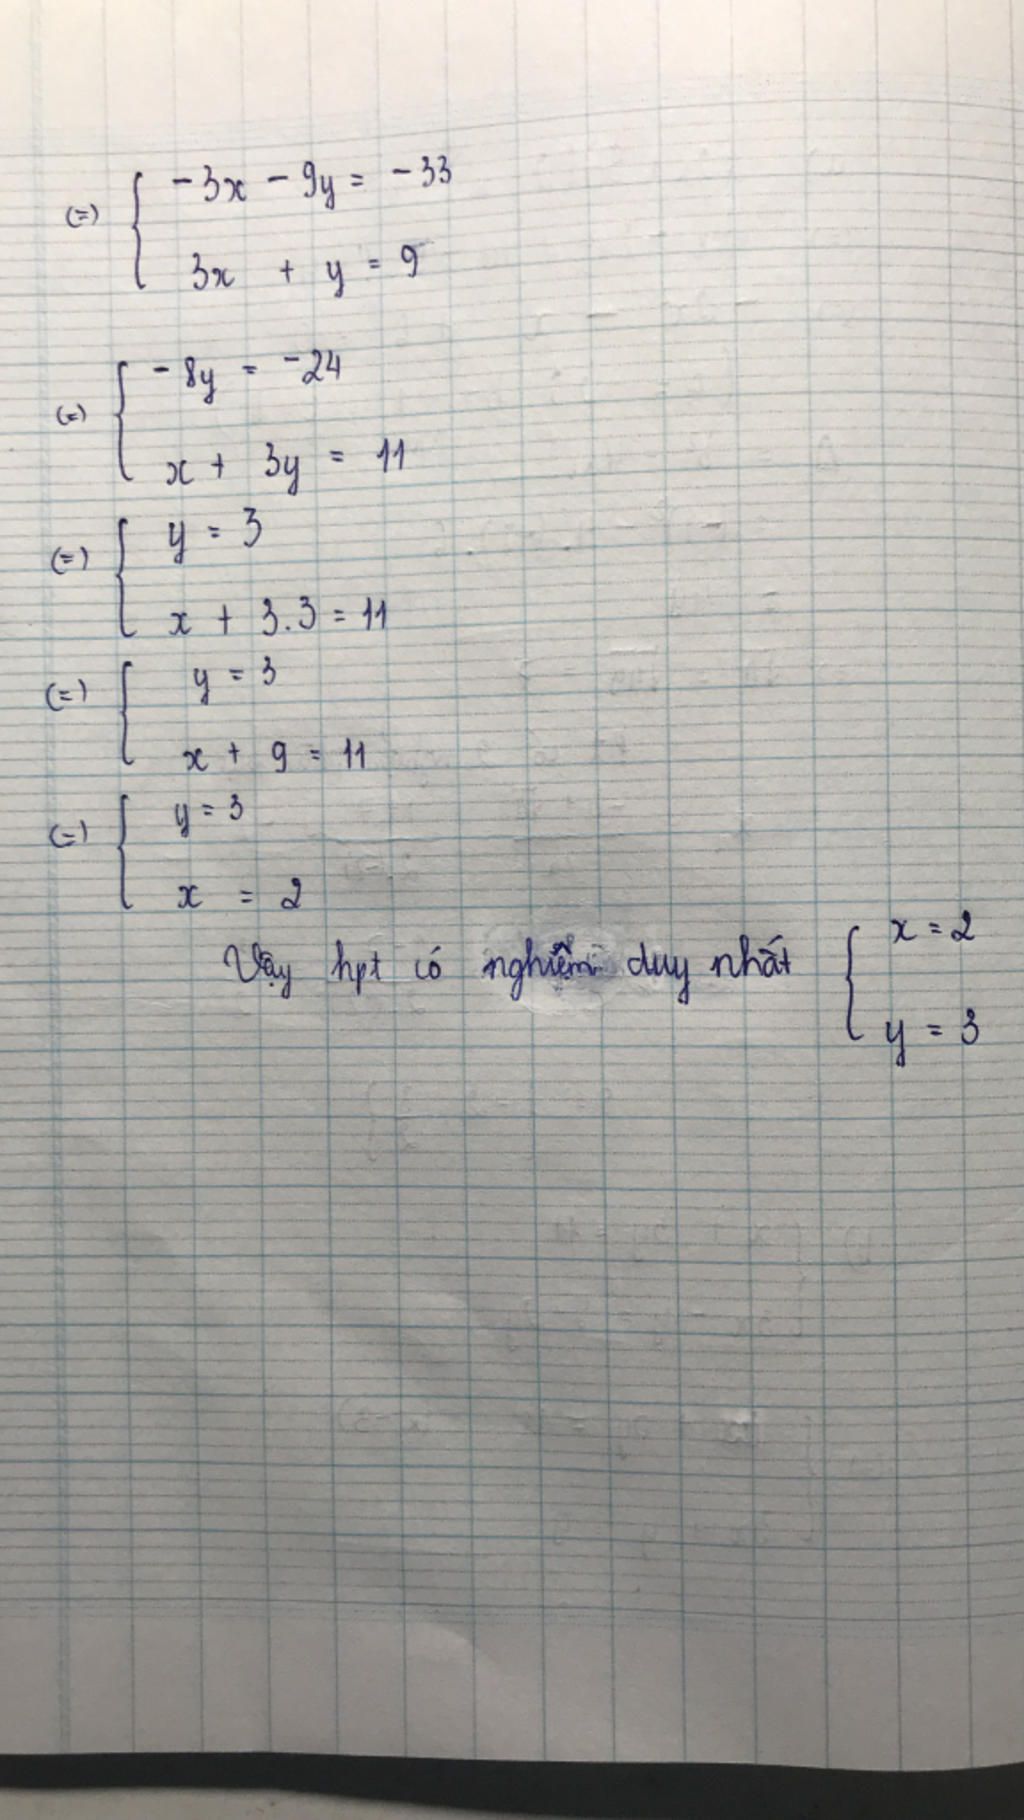 (=) { -3x - 9y = -33
3x + y = 9
(=) { -8y = -24
x + 3y = 11
(=) { y = 3
x + 3.3 = 11
(=) { y = 3
x + 9 = 11
(=) { y = 3
x = 2
Vậy hpt có nghiệm duy nhất { x = 2
y = 3